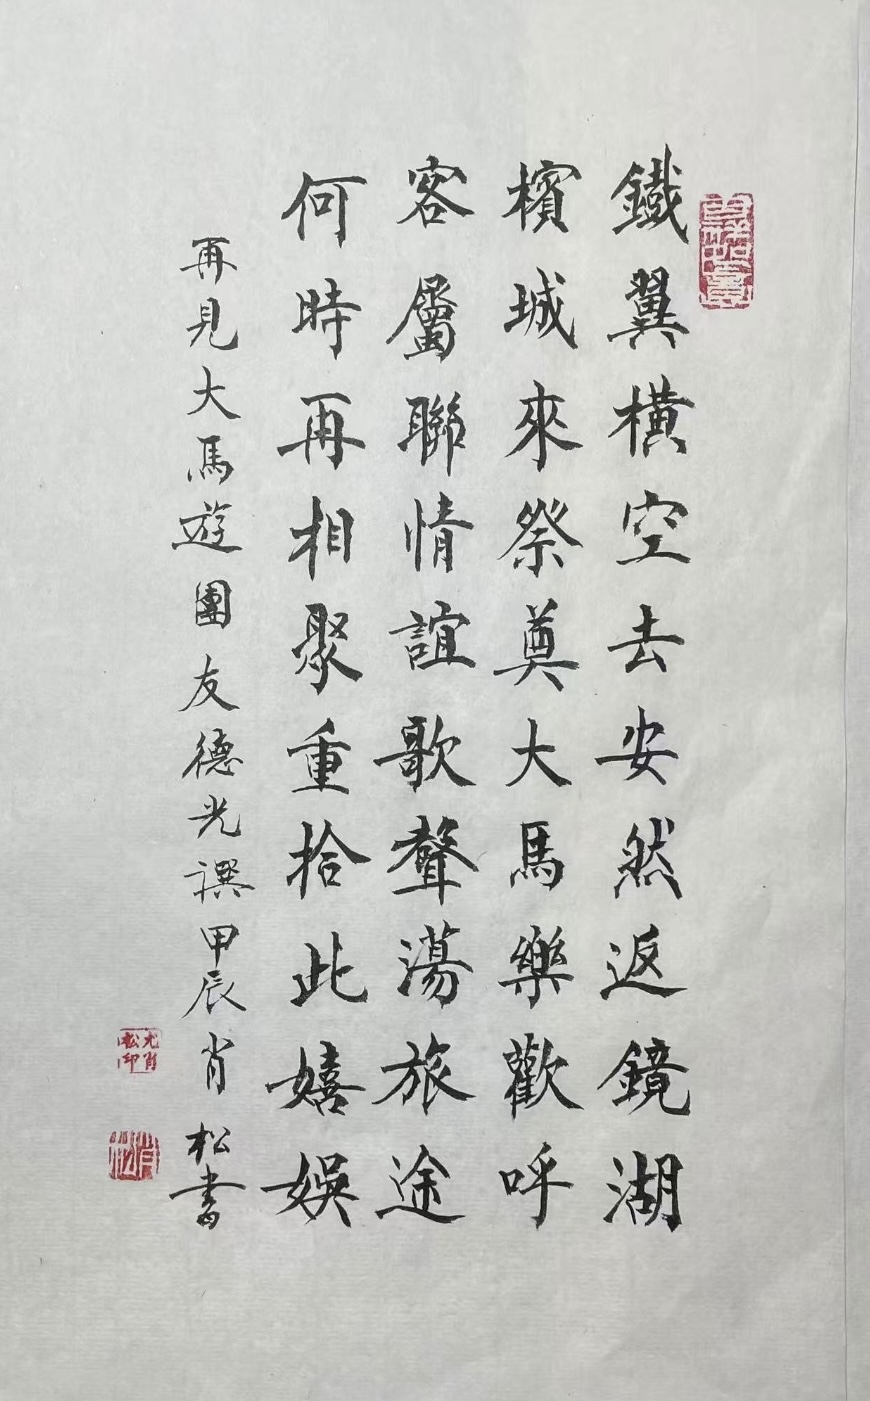 鐵翼橫空去安然返鏡湖
檳城來祭奠大馬樂歡呼
客屬聯情誼歌聲蕩旅途
何時再相聚重拾此嬉娛
再見大馬遊團友德光譔甲辰肖松書
尤肖松印
肖松